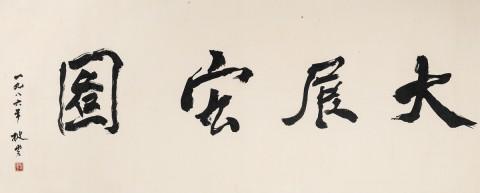 大展宏圖
一九八六年